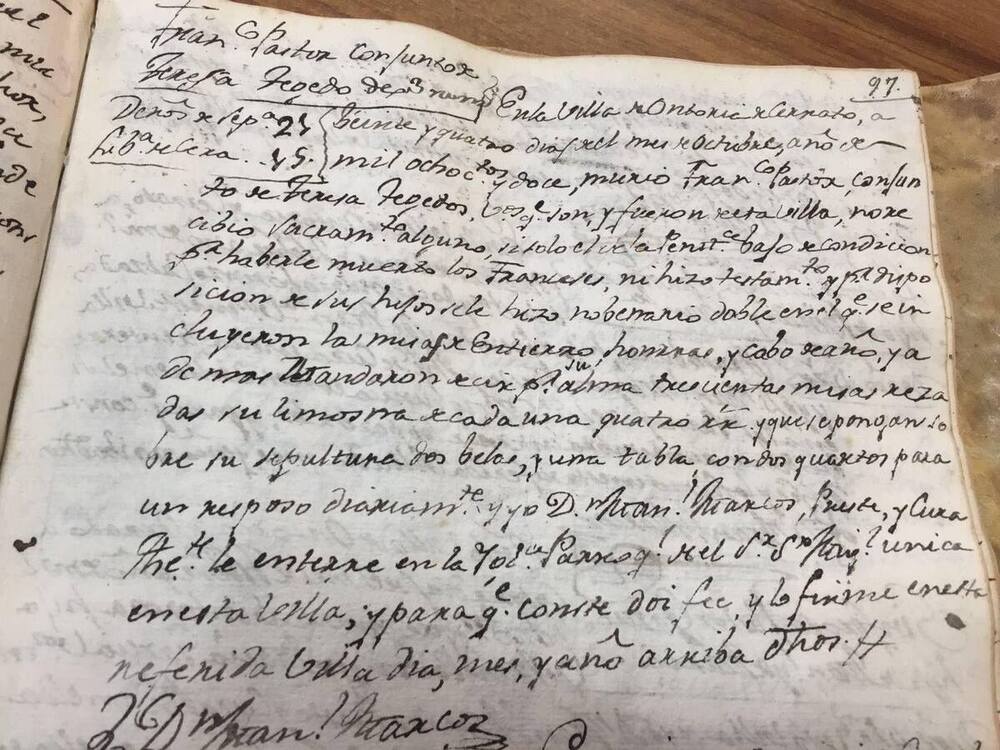 97.
Fran.co Pastor Consunto de
Teresa Tegedo
Dros de sep.a 24
Lib.a de Cera. 15.
En la Villa de Ontoria de Cerrato, a
beinte y quatro dias del mes de Octubre, año de
mil ochoc.tos y doce, murio Fran.co Pastor, consun
to de Teresa Tegedos, q.e son, y fueron de esta Villa, no re
cibio Sacram.to alguno, si solo el de la Penit.a baso de condicion
p.r haberle muerto los Franceses, ni hizo testam.to y p.r dispo
sicion de sus hijos se le hizo nobenario doble en el q.e se in
cluyeron las misas de Entierro, honrras, y cabo de año, y a
demas Mandaron decir p.r su alma trescientas misas reza
das su limosna de cada una quatro r.s y que se pongan so
bre su sepultura dos belas, y una tabla, con dos quartos para
un resposo diariam.te y yo D.n Man.l Marcos, Preste, y Cura
The.te le enterre en la Yg.a Parroq.l del S.r S.n Mig.l unica
en esta Villa; y para q.e conste doi fee, y lo firme en esta
referida Villa dia, mes, y año arriba dhos. #
D.n Man.l Marcos